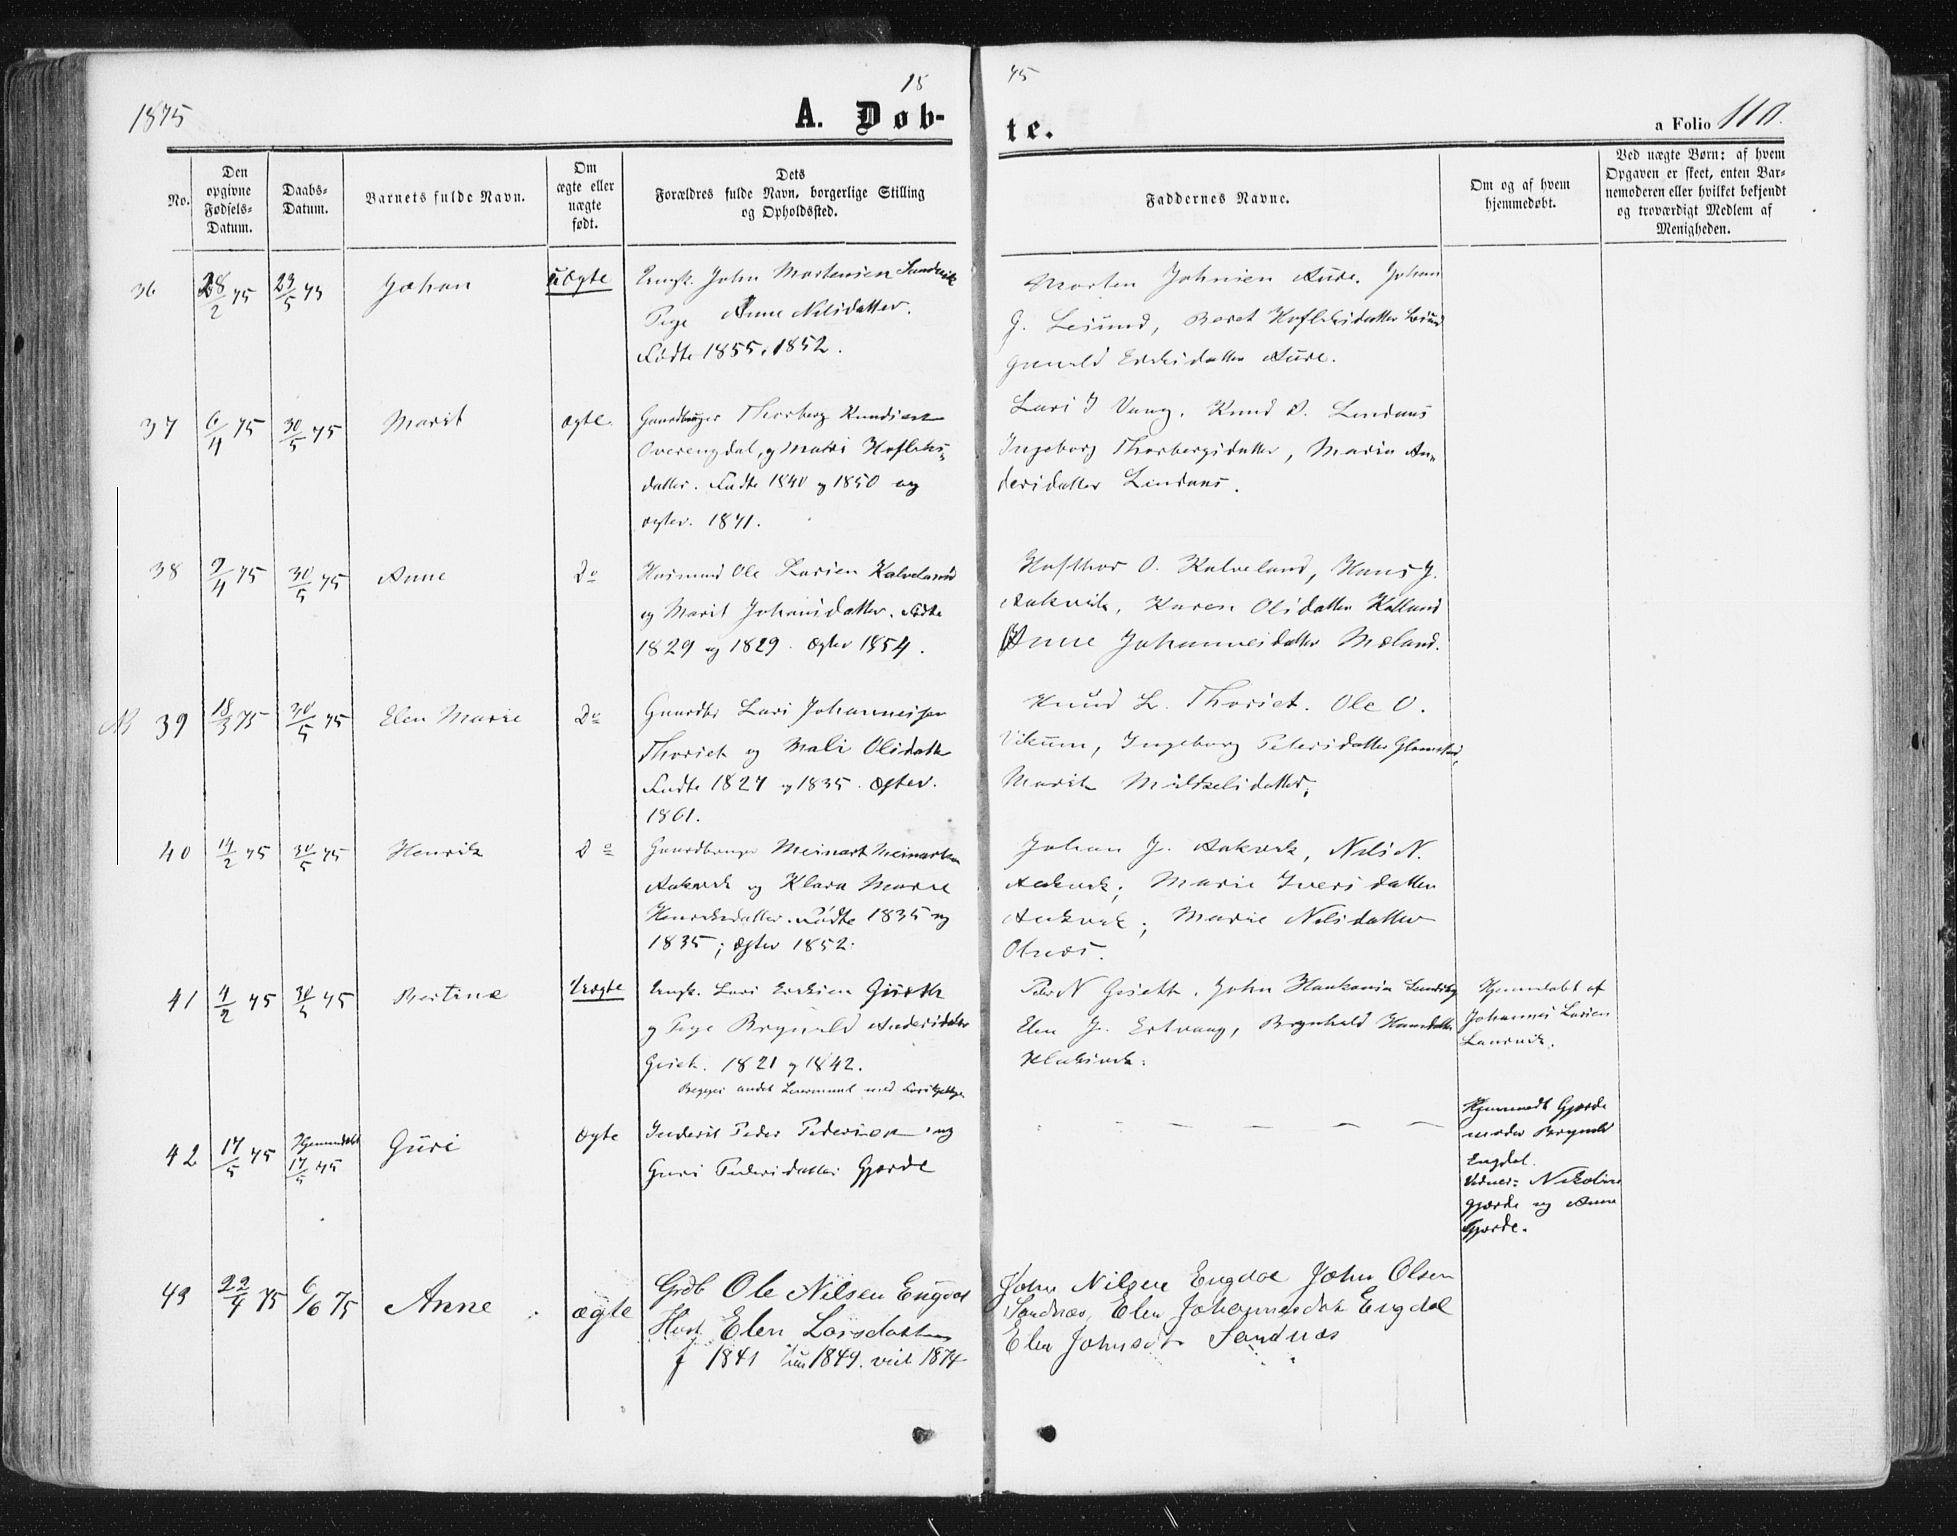 1875
18 75
A. Døb-
te.
a Folio 110.
No.
Den opgivne Fødsels-Datum.
Daabs-Datum.
Barnets fulde Navn.
Om ægte eller uægte født.
Dets Forældres fulde Navn, borgerlige Stilling og Opholdssted.
Faddernes Navne.
Om og af hvem hjemmedøbt.
Ved uægte Børn: af hvem Opgaven er skeet, enten Barnemoderen eller hvilket bekjendt og troværdigt Medlem af Menigheden.
36 28/2 75 23/5 75 Johan uægte
Ungk. John Mortensen Sandvik
Pige Anne Nilsdatter.
Fødte 1855, 1852.
Morten Johnsen Aure. Johan
G. Lesund, Beret Hoflehsdatter Lesund
Gunild Eriksdatter Aure.
37 6/4 75 30/5 75 Marit ægte.
Gaardbruger Thorberg Knudsen
Overengdal, og Hoflehs
datter. Fødte 1840 og 1850 og
ægtev. 1871.
Lars J Vang. Knud Lindaas
Ingeborg Thorbergsdatter, Marie An
dersdatter Lindaas.
38 9/4 75 30/5 75 Anne Do
Husmand Ole Larsen Kalveland
og Marit Johansdatter. Fødte
1829 og 1829. ægtev 1854.
Hofthor O. Kalveland, Hans J.
Aakvik, Karen Olsdatter
Anne Johannesdatter Mæland.
39 18/3 75 30/5 75 Elen Marie Do
Gaardbr Lars Johannessen
Thorset og Mali Olsdatter
Fødte 1827 og 1835. ægtev.
1861.
Knud L. Thorset. Ole O.
Vikum, Ingeborg Petersdatter Glamstad,
Marit Mikkelsdatter,
40 14/2 75 30/5 75 Henrik Do
Gaardbruger Meinart Meinartsen
Aakvik og Klara Marie
Henriksdatter. Fødte 1835 og
1835; ægtev 1852.
Johan J. Aakvik, Nils N.
Aakvik; Marie Iversdatter
Aakvik; Marie Nilsdatter
Olsnes.
41 4/2 75 30/5 75 Bertine Uægte
Ungk. Lars Eriksen
og Pige Brynild Andersdatter
1821 og 1842.
Begges andet Leiermaal med
Peder N Gisett. John Haakonsen
Elen J. Ertvaag, Brynhild Hansdatter
Hjemmedøbt af
Johannes Larsen
Laurvik.
42 17/5 75 Hjemmedøbt 17/5 75 Guri ægte
Inderst Peder Pedersen og
Guri Pedersdatter Gjørde
— — — —
Hjemmedt Gjorde
moder Brynild
Engdal.
Vidner: Nikoline
Gjørde og Anne
Gjørde.
43 22/4 75 6/6 75 Anne ægte
Grdb Ole Nilsen Engdal
Hust. Elen Larsdatter
f 1841 hun 1849. viet 1874
John Nilsen Engdal John Olsen
Sandnæs, Elen Johannesdat Engdal
Elen Johnsdt Sandnæs